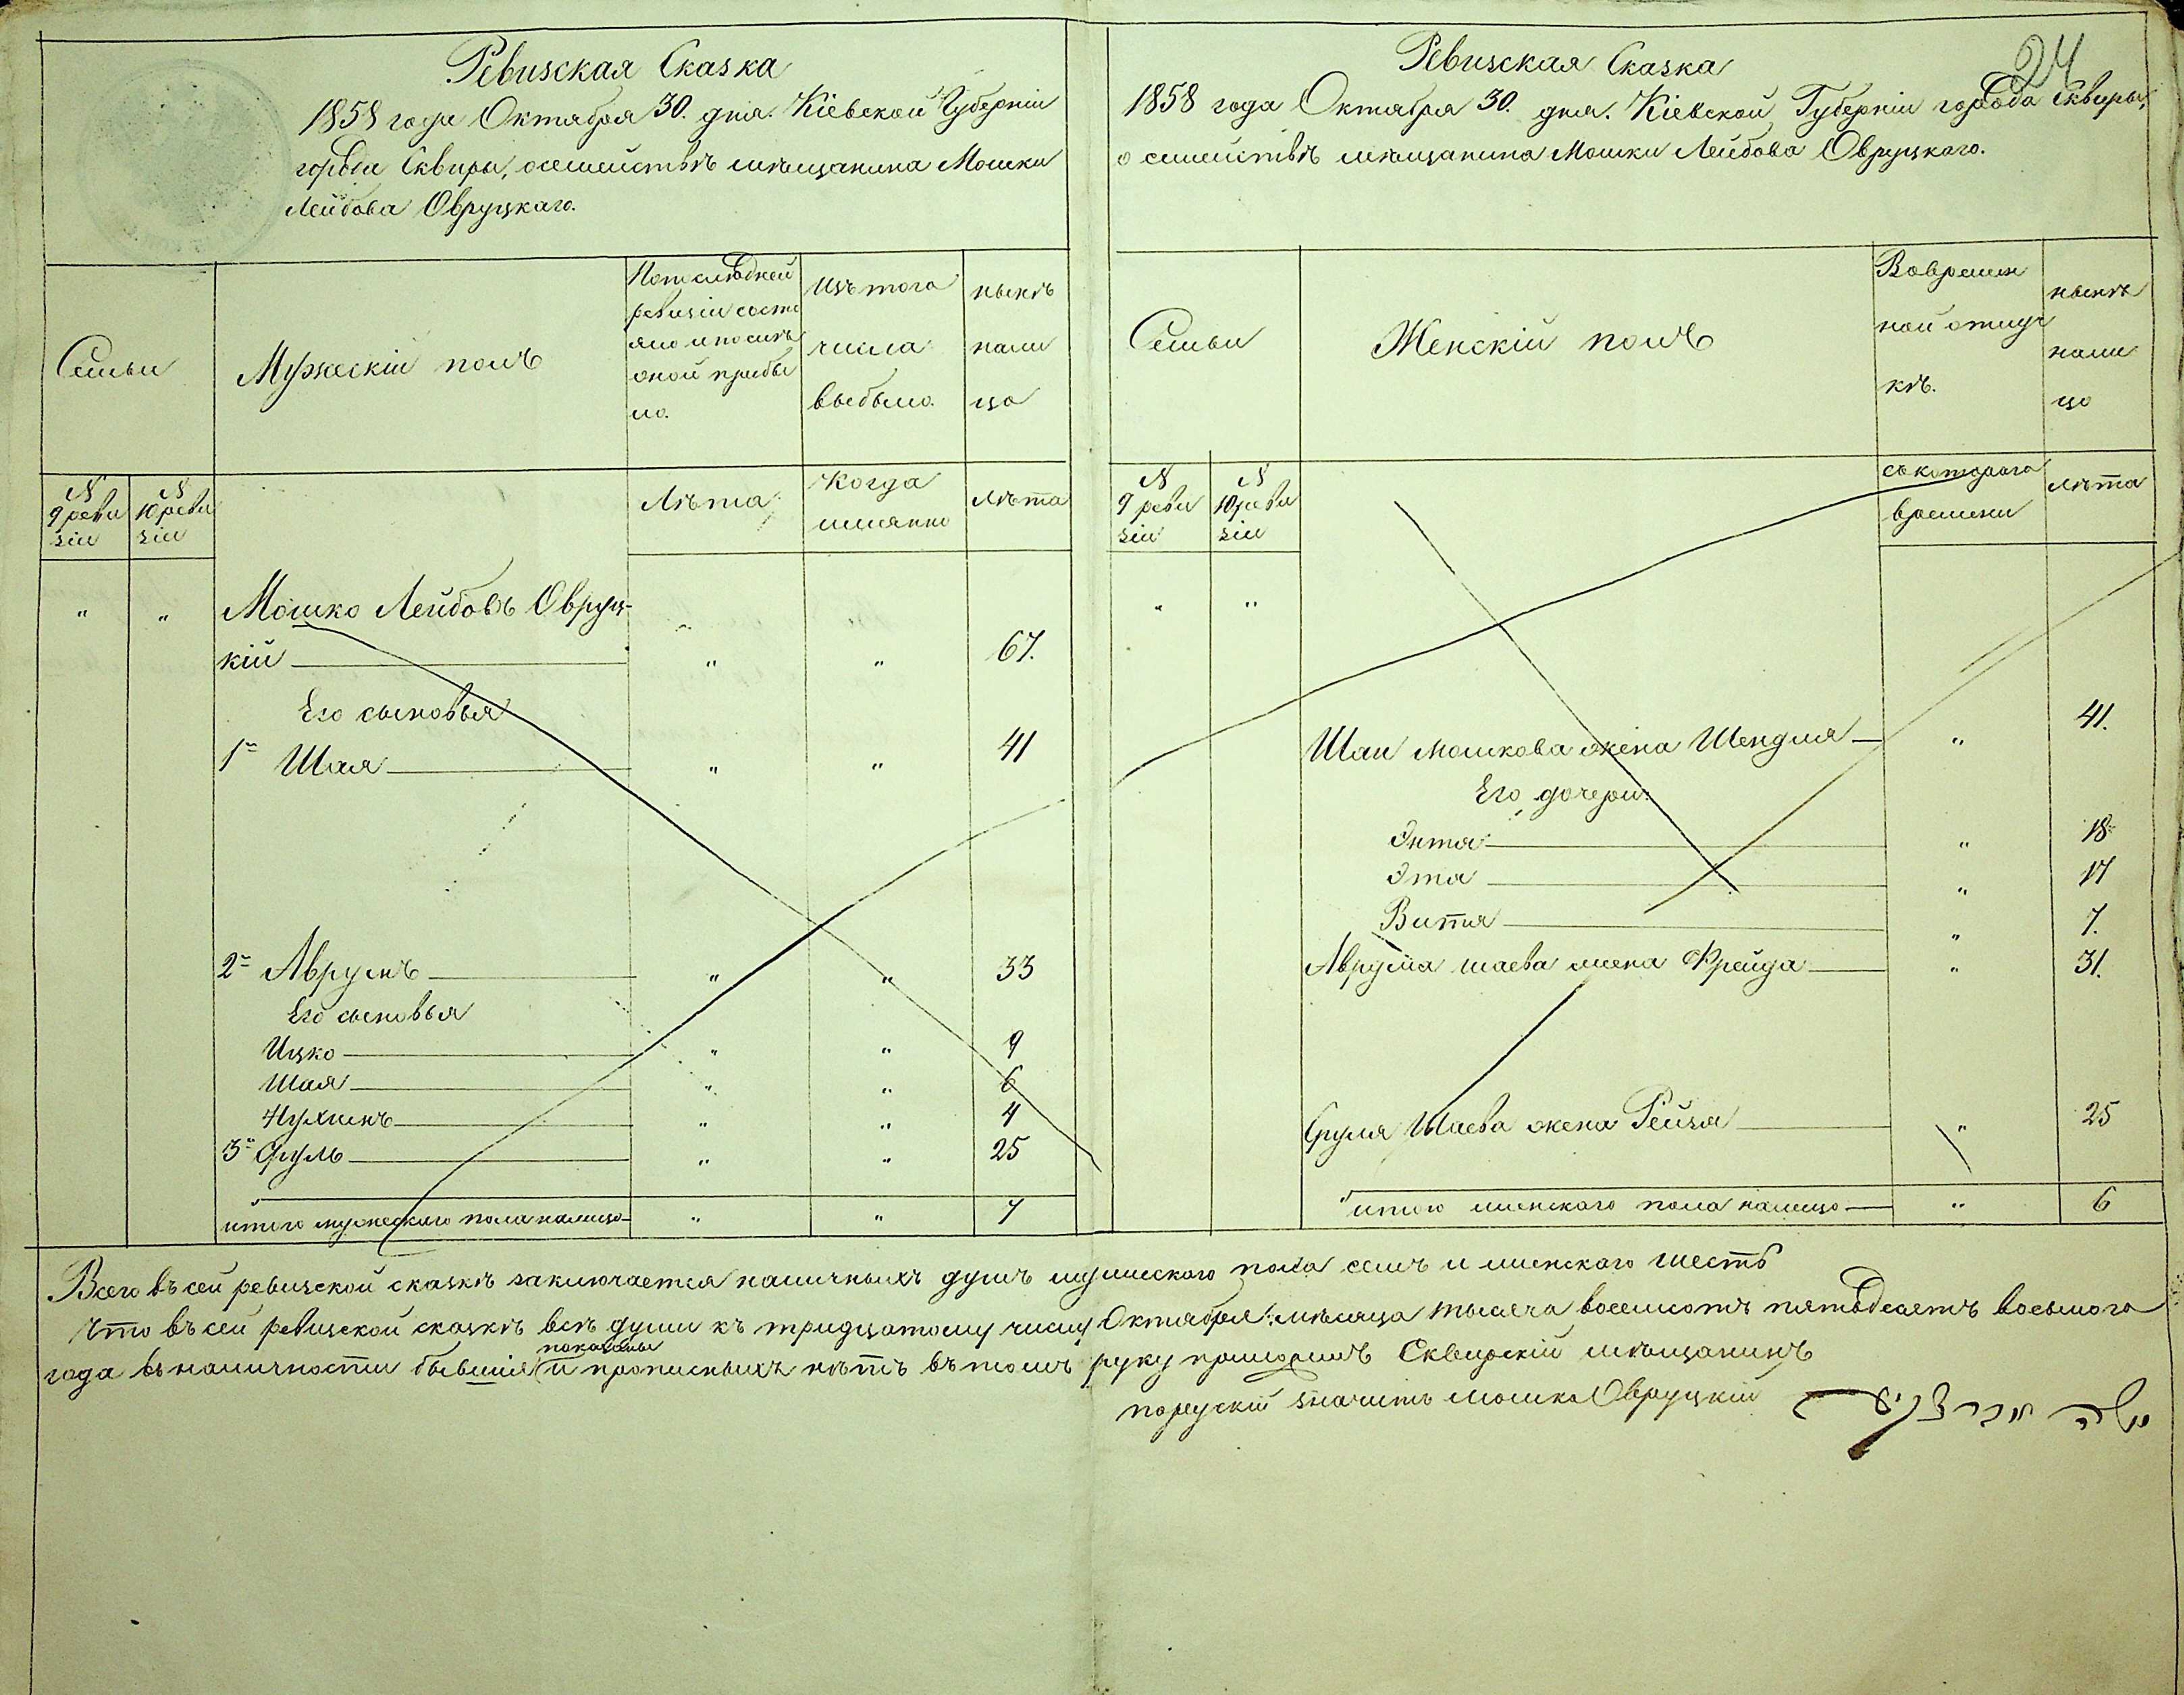 Ревизская Сказка
1858 года Октября 30. дня. Кіевской Губерніи
города Сквиры, о семействѣ мѣщанина Мошки
Лейбова Овруцкаго.
Семьи
Мужескій полъ
По последней
ревизіи состо
яло и послѣ
оной прибы
ло.
Изъ того
числа
выбыло.
нынѣ
нали
цо
N
9 реви
зіи
N
10 реви
зіи
Лѣта
Когда
имянно
лѣта
" " Мошко Лейбовъ Овруц-
кій " " 67.
Его сыновья
1й Шая " " 41
2й Аврумъ " " 33
Его сыновья
Ицко " " 9
Шая " " 6
Нухимъ " " 4
3й Сруль " " 25
итого мужескаго пола налицо " " 7
24
Ревизская Сказка
1858 года Октября 30. дня. Кіевской Губерніи города Сквиры,
о семействѣ мѣщанина Мошки Лейбова Овруцкаго.
Семьи
Женскій полъ
Во времен
ной отлуч
кѣ.
нынѣ
нали
цо
N
9 реви
зіи
N
10 реви
зіи
съ котораго
времени
лѣта
" "
Шаи Мошкова жена Шендля " 41.
Его дочери:
Энтя " 18
Этя " 17
Витя " 7.
Аврума Шаева жена Фрейда " 31.
Сруля Шаева жена Рейзя " 25
итого женскаго пола налицо " 6
Всего въ сей ревизской сказкѣ заключается наличныхъ душъ мужескаго пола семь и женскаго шесть
Что въ сей ревизской сказкѣ всѣ души къ тридцатому числу Октября мѣсяца тысяча восемсотъ пятьдесятъ восьмого
года въ наличности бывшія показаны и прописныхъ нѣтъ въ томъ руку приложилъ Сквирскій мѣщанинъ
порускій значитъ Мошко Овруцкій